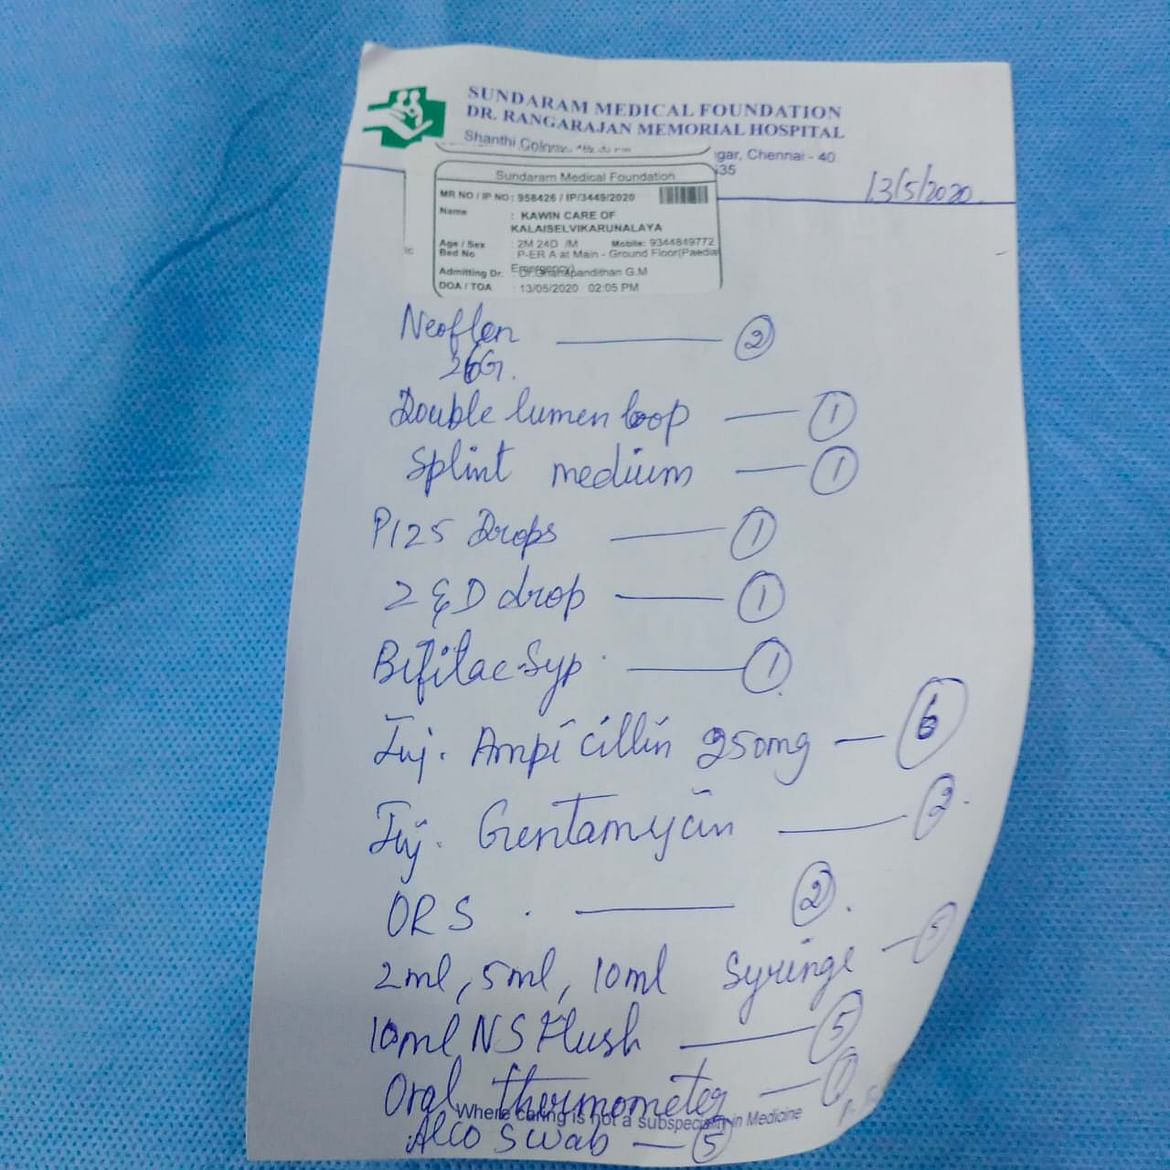 SUNDARAM MEDICAL FOUNDATION
DR. RANGARAJAN MEMORIAL HOSPITAL
Shanthi Colony,
gar, Chennai - 40
35
13/5/2020
Sundaram Medical Foundation
MR NO / IP NO : 958426 / IP/3449/2020
Name : KAWIN CARE OF
KALAISELVIKARUNALAYA
Age / Sex : 2M 24D /M Mobile: 9344849772
Bed No : P-ER A at Main - Ground Floor(Paedia
Emergency)
Admitting Dr. : Dr.Gnanapandithan G.M
DOA / TOA : 13/05/2020 02:05 PM
Neoflon 2
26G.
Double lumen loop — 1
Splint medium — 1
P125 Drops — 1
Z & D drop — 1
Bifilac Syp — 1
Inj. Ampicillin 250mg — 6
Inj. Gentamycin — 2
ORS — 2
2ml, 5ml, 10ml Syringe — 5
10ml NS Flush — 5
Oral thermometer — 1
Where caring is not a subspecialty in Medicine
Alco Swab — 5